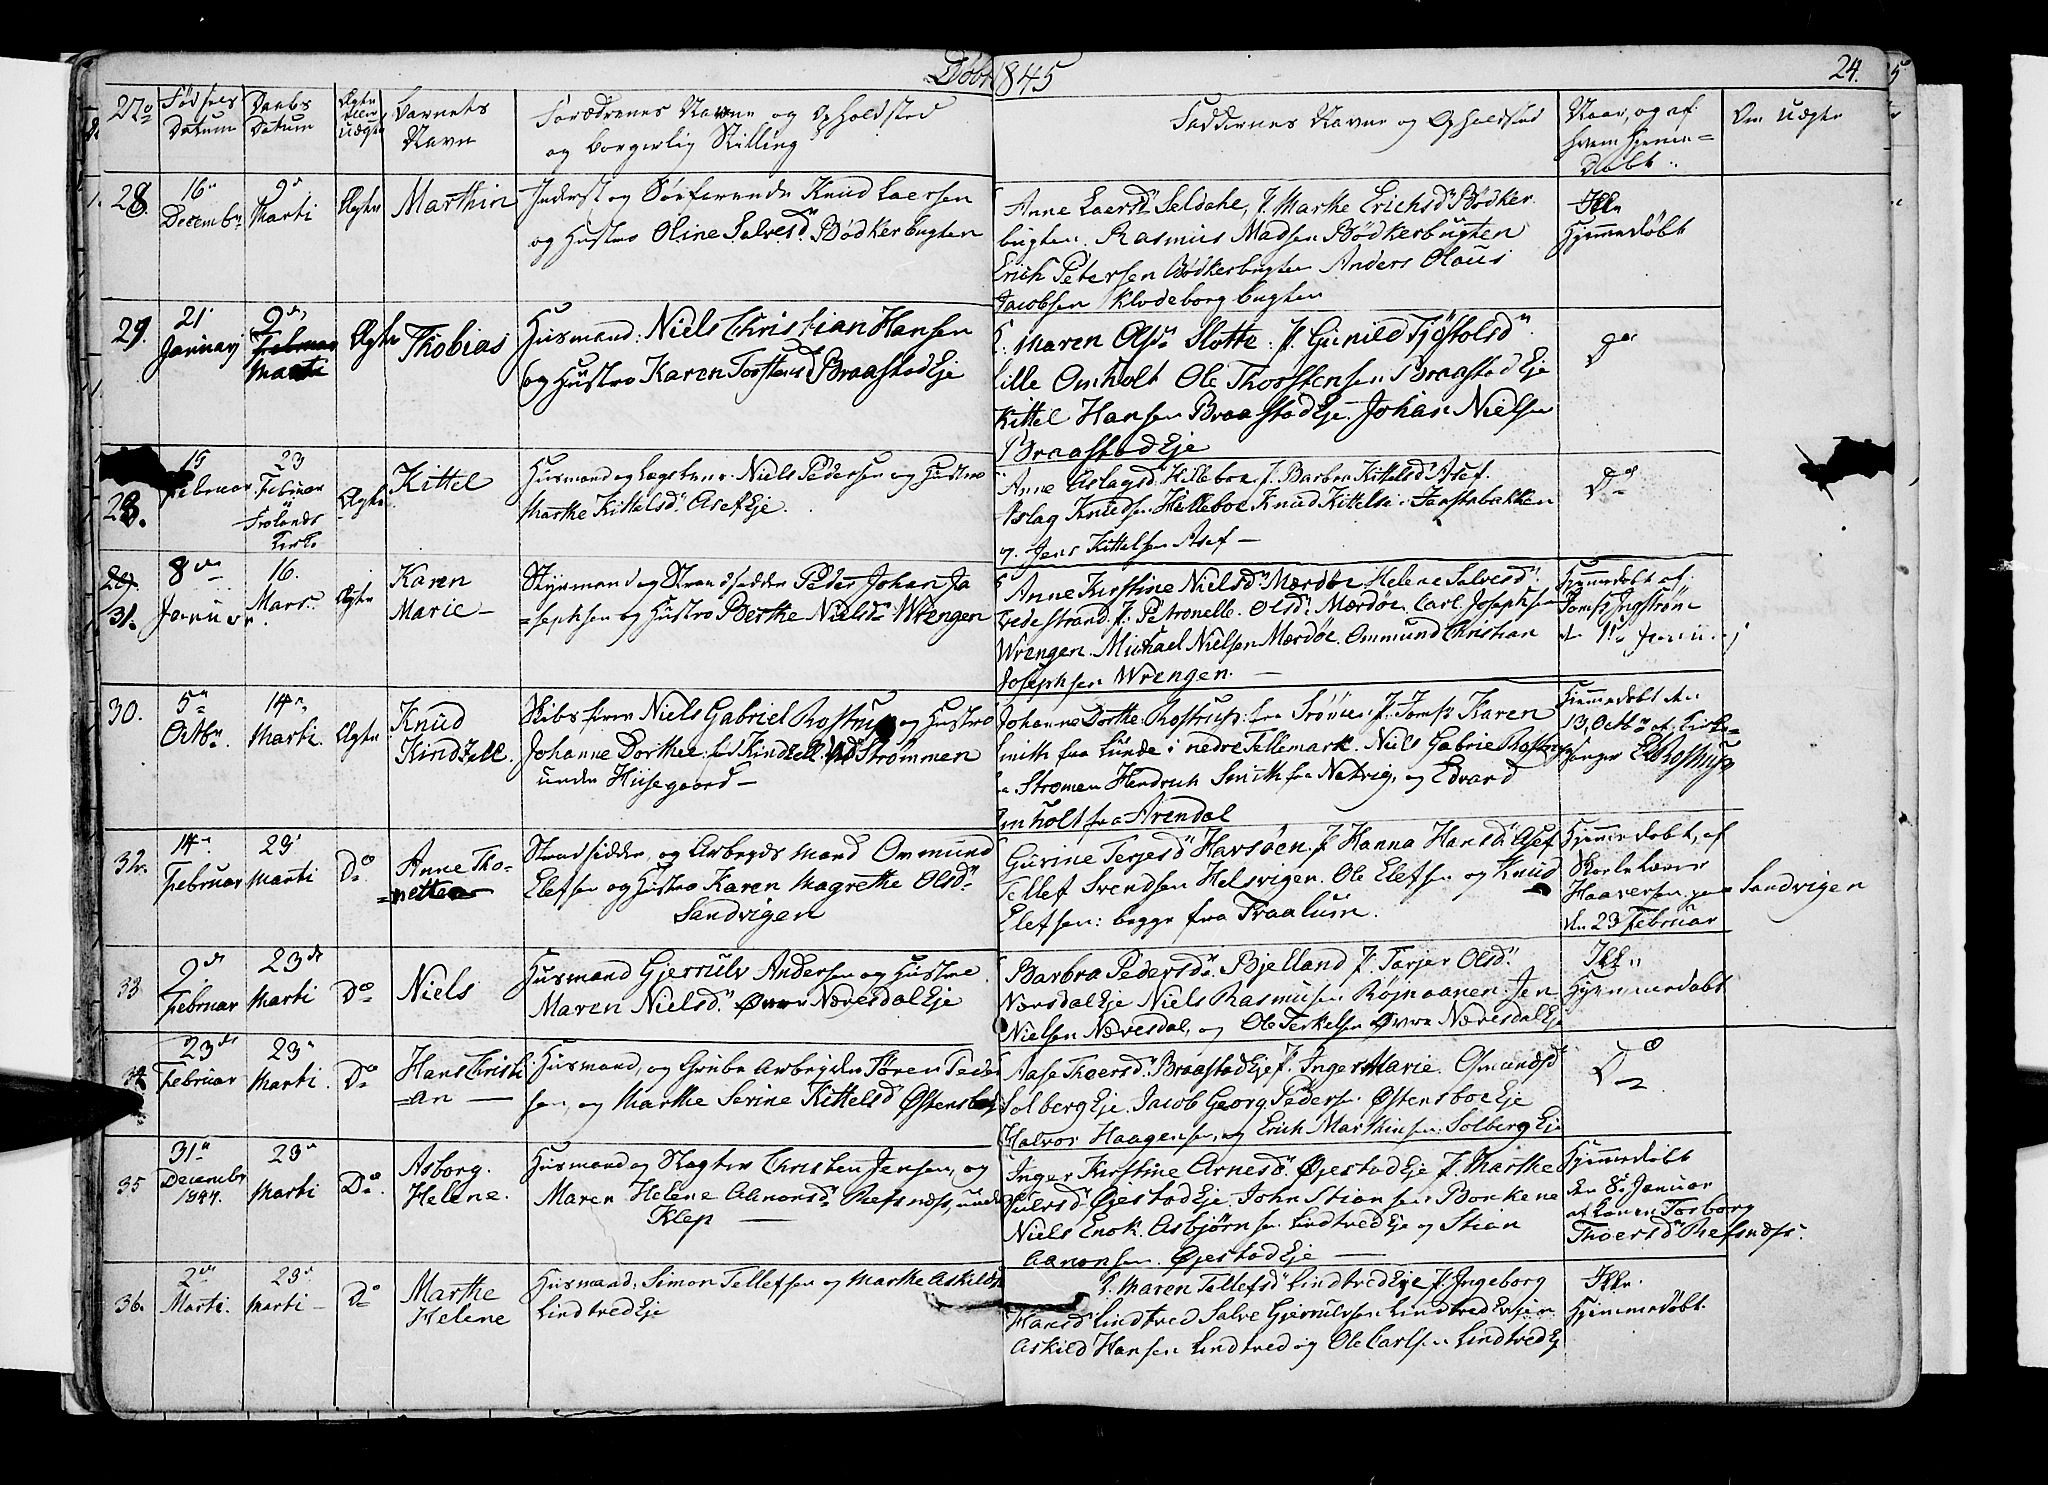 Døbte 1845
24.
No
Fødsels Datum
Daabs Datum
Ægte eller Uægte
Barnets Navn
Forældrenes Navne og Opholdsted
og borgerlig Stilling
Faddernes Navne og Opholdsted
Naar, og af hvem hjemme=døbt
Om Uægte
28.
16 Decembr
9de Marti
Ægte
Marthin
Inderst og Søefarende Knud Laersen
og Hustro Oline Salvesd. Bødkerbugten
Anne Laersd. Seldahl, J. Marthe Erichsd. Bødker
bugten. Rasmus Madsen Bødkerbugten
Erich Petersen Bødkerbugten Anders Olaus
Jacobsen Klodeborg bugten
Ikke Hjemmedøbt
29.
21 Januarj
9de Februar Marti
Ægte
Thobias
Husmand: Niels Christian Hansen
og Hustro Karen Torstensd Braastad Eje
Maren Olsd. Slotte. J. Gunild Tjöstolsd.
Lille Omholt Ole Thorstensen Braastad Eje
Kittel Hansen Braastad Eje. Johan Nielsen
Braastad Eje
Do
28.
15 Februar
23 Februar i Frolands Kirke
Ægte
Kittel
Husmand og Niels Pedersen og Hustro
Marthe Kittelsd. Asef Eje.
Anne Aslagsd. Hilleboe J. Barbra Kittelsd. Asef.
Aslag Knudsen Hilleboe Knud Kittelsen
Jens Kittelsen Asef —
Do
29.
31.
8de Januar
16. Mars
Ægte
Karen
Marie —
Styrmand og Strandsidder Peder Johan Jo
=sephsen og Hustro Berthe Nielsd. Wrengen
Anne Kirstine Nielsd. Mærdøe Helene Salvesd.
Vedestrand. J. Petronelle Olsd. Mærdøe. Carl Josephsen
Wrengen. Michael Nielsen Mærdøe. Ommund Christian
Josephsen Wrengen. —
Hjemmedøbt af
30.
5te Octbr.
14de Marti.
Ægte
Knud
Kindzell.
Skibsfører Niels Gabriel Rostrup og Hustro
Johanne Dorthee fød Kindzell ved Strømmen
under Hisegaard —
Johanne Dorthe Rostrup fra J. Jomfr Karen
Smith fra Lunde i nedre Tellemark. Niels Gabriel Rostrup
Stromen Hendrich Smith fra Natvig, og Edvard
Omholt fra Arendal
Hjemmedøbt den
13 Octbr af Kirke=
sanger Rostrup
32.
14de Februar
23 Marti
Do
Anne Tho-
=mettea
Strandsidder, og Arbeydsmand Ommund
Elefsen og Hustro Karen Magrethe Olsd.
Sandvigen
Gurine Terjesd. Havsøen. J Hanna Hansd. Asef
Tellef Svendsen Helsvigen. Ole Elefsen og Knud
Elefsen: begge fra Traalum.
Hjemmedøbt, af
Skolelærer
Haaversen
den 23 Februar
Sandvigen
33
2de Februar
23de Marti
Do
Niels
Husmand Gjerrulv Andersen og Hustroe
Maren Nielsd. Øvre Næresdal Eje
Barbra Pedersd. Bjelland J. Tarjer Olsd.
Næresdal Eje Niels Rasmusen Røjnaanen. Jen
Nielsen Næresdal, og Ole Terkelsen Øvre Næresdal Eje
Ikke
Hjemmedøbt
34
23de Februar
23 Marti.
Do
Hans Christi
=an —
Husmand, og Grube Arbeyder Søren Peder
sen, og Marthe Serine Kittelsd Østensboe
Aase Thoersd. Braastad Eje J. Inger Marie Osmundsd
Solberg Eje. Jacob Georg Pedersen Østensboe Eje
Halvor Haagensen, og Erich Marthinsen Solberg Eje
Do
35
31te December 1844.
23 Marti
Do
Asborg.
Helene.
Husmand og Slagter Christen Jensen, og
Maren Helene Aanonsd. Refsnæs, under
Klep —
Inger Kirstine Arnesd. Øjestad Eje J. Marthe
Øjestad Eje. John Stiansen Borkene
Niels Enok Asbjørnsen Lindtved Eje og Stian
Aanonsen. Øjestad Eje —
Hjemmedøbt
den 8. Januar
af Torborg
Thoersd Refsnæs.
36.
2den Marti.
23de Marti —
Do
Marthe
Helene
Husmand, Simon Tellefsen og Marthe Askildsd
Lindtved Eje
Maren Tellefsd Lindtved Eje J. Ingeborg
Hansd Lindtved Salve Gjerrulvsen Lindtved Eje
Askild Hansen Lindtved og Ole Carlsen Lindtved Ej
Ikke
Hjemmedøbt.